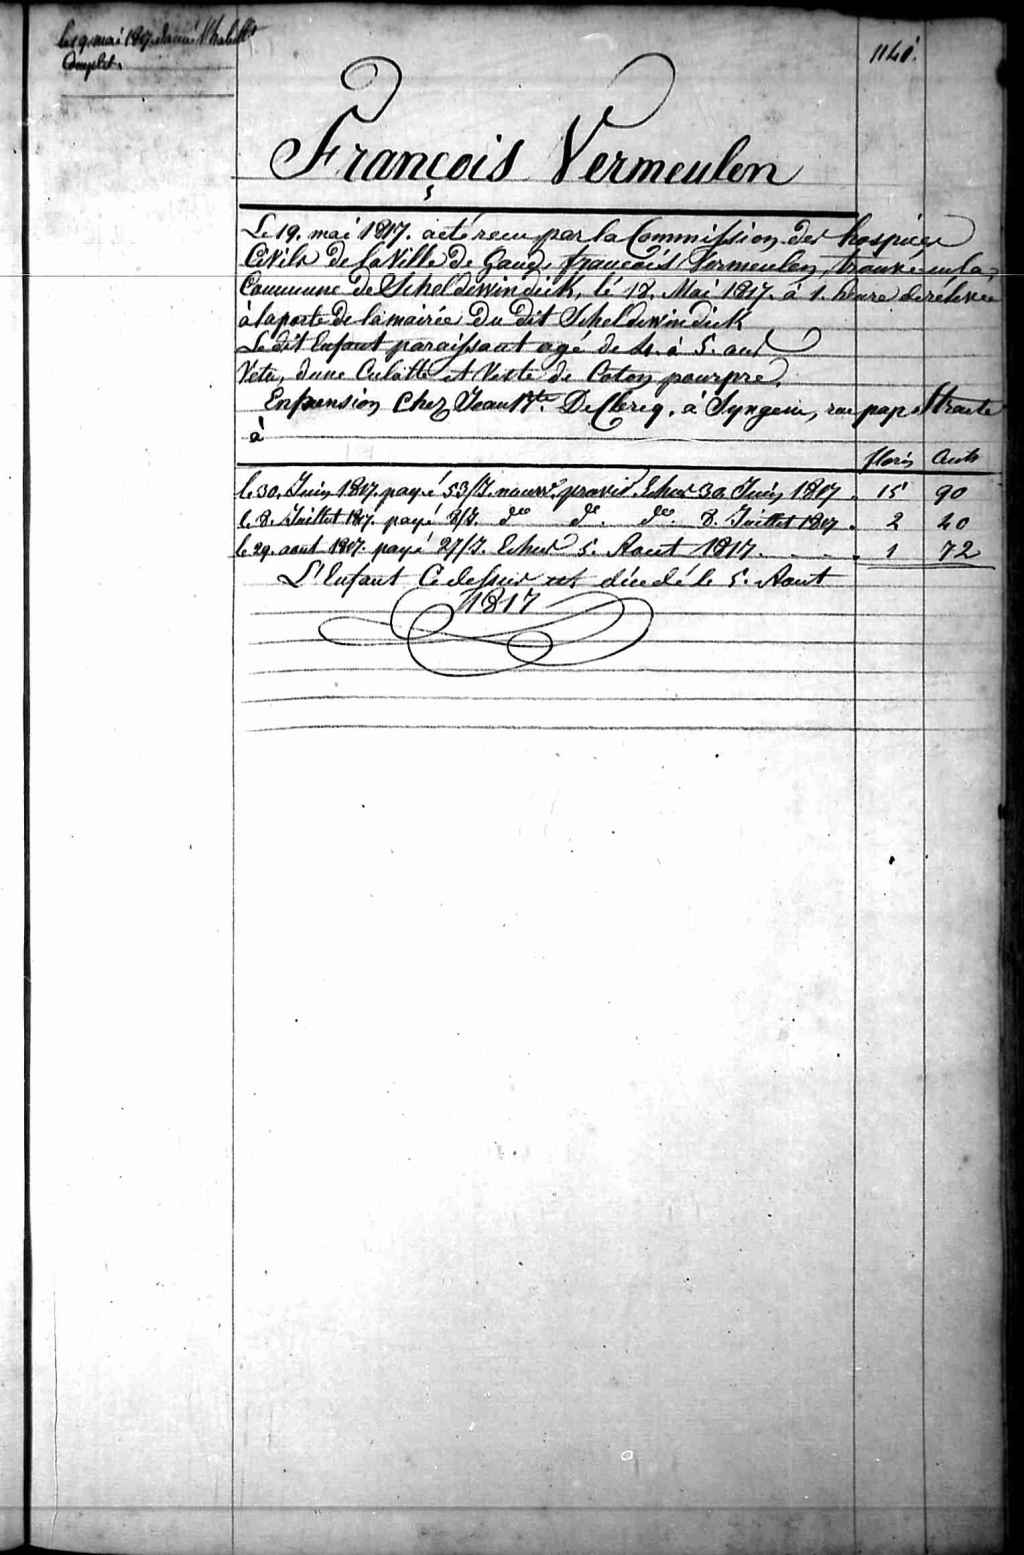 le 19. mai 1817. donné 1 habill.t
Complet.
1141.
François Vermeulen
Le 19. mai 1817. a été recu par la Commission des hospices
Civils de la Ville de Gand, francois Vermeulen, trouvé en la
Commune de Scheldewindick, le 18. Mai 1817. à 1. heure de rélevée
à la porte de la mairée du dit Scheldewindick
Le dit Enfant paraissant agé de 4. à 5. ans
Vetu, d'une Culotte et Veste de Coton pourpre.
En pension Chez Jean Bte. De Clercq, à Syngem, rue pape Straete
à
floris Cents
le 30. Juin 1817. payé 53/J. nourr. provis. Echus 30. Juin 1817. 15 90
le 8. Juillet 1817. payé 8/J. do do. do. 8. Juillet 1817. 2 40
le 29. aout 1817. payé 27/J. Echus 5. Aout 1817. 1 72
L'Enfant Cidessus est décédé le 5. Aout
1817